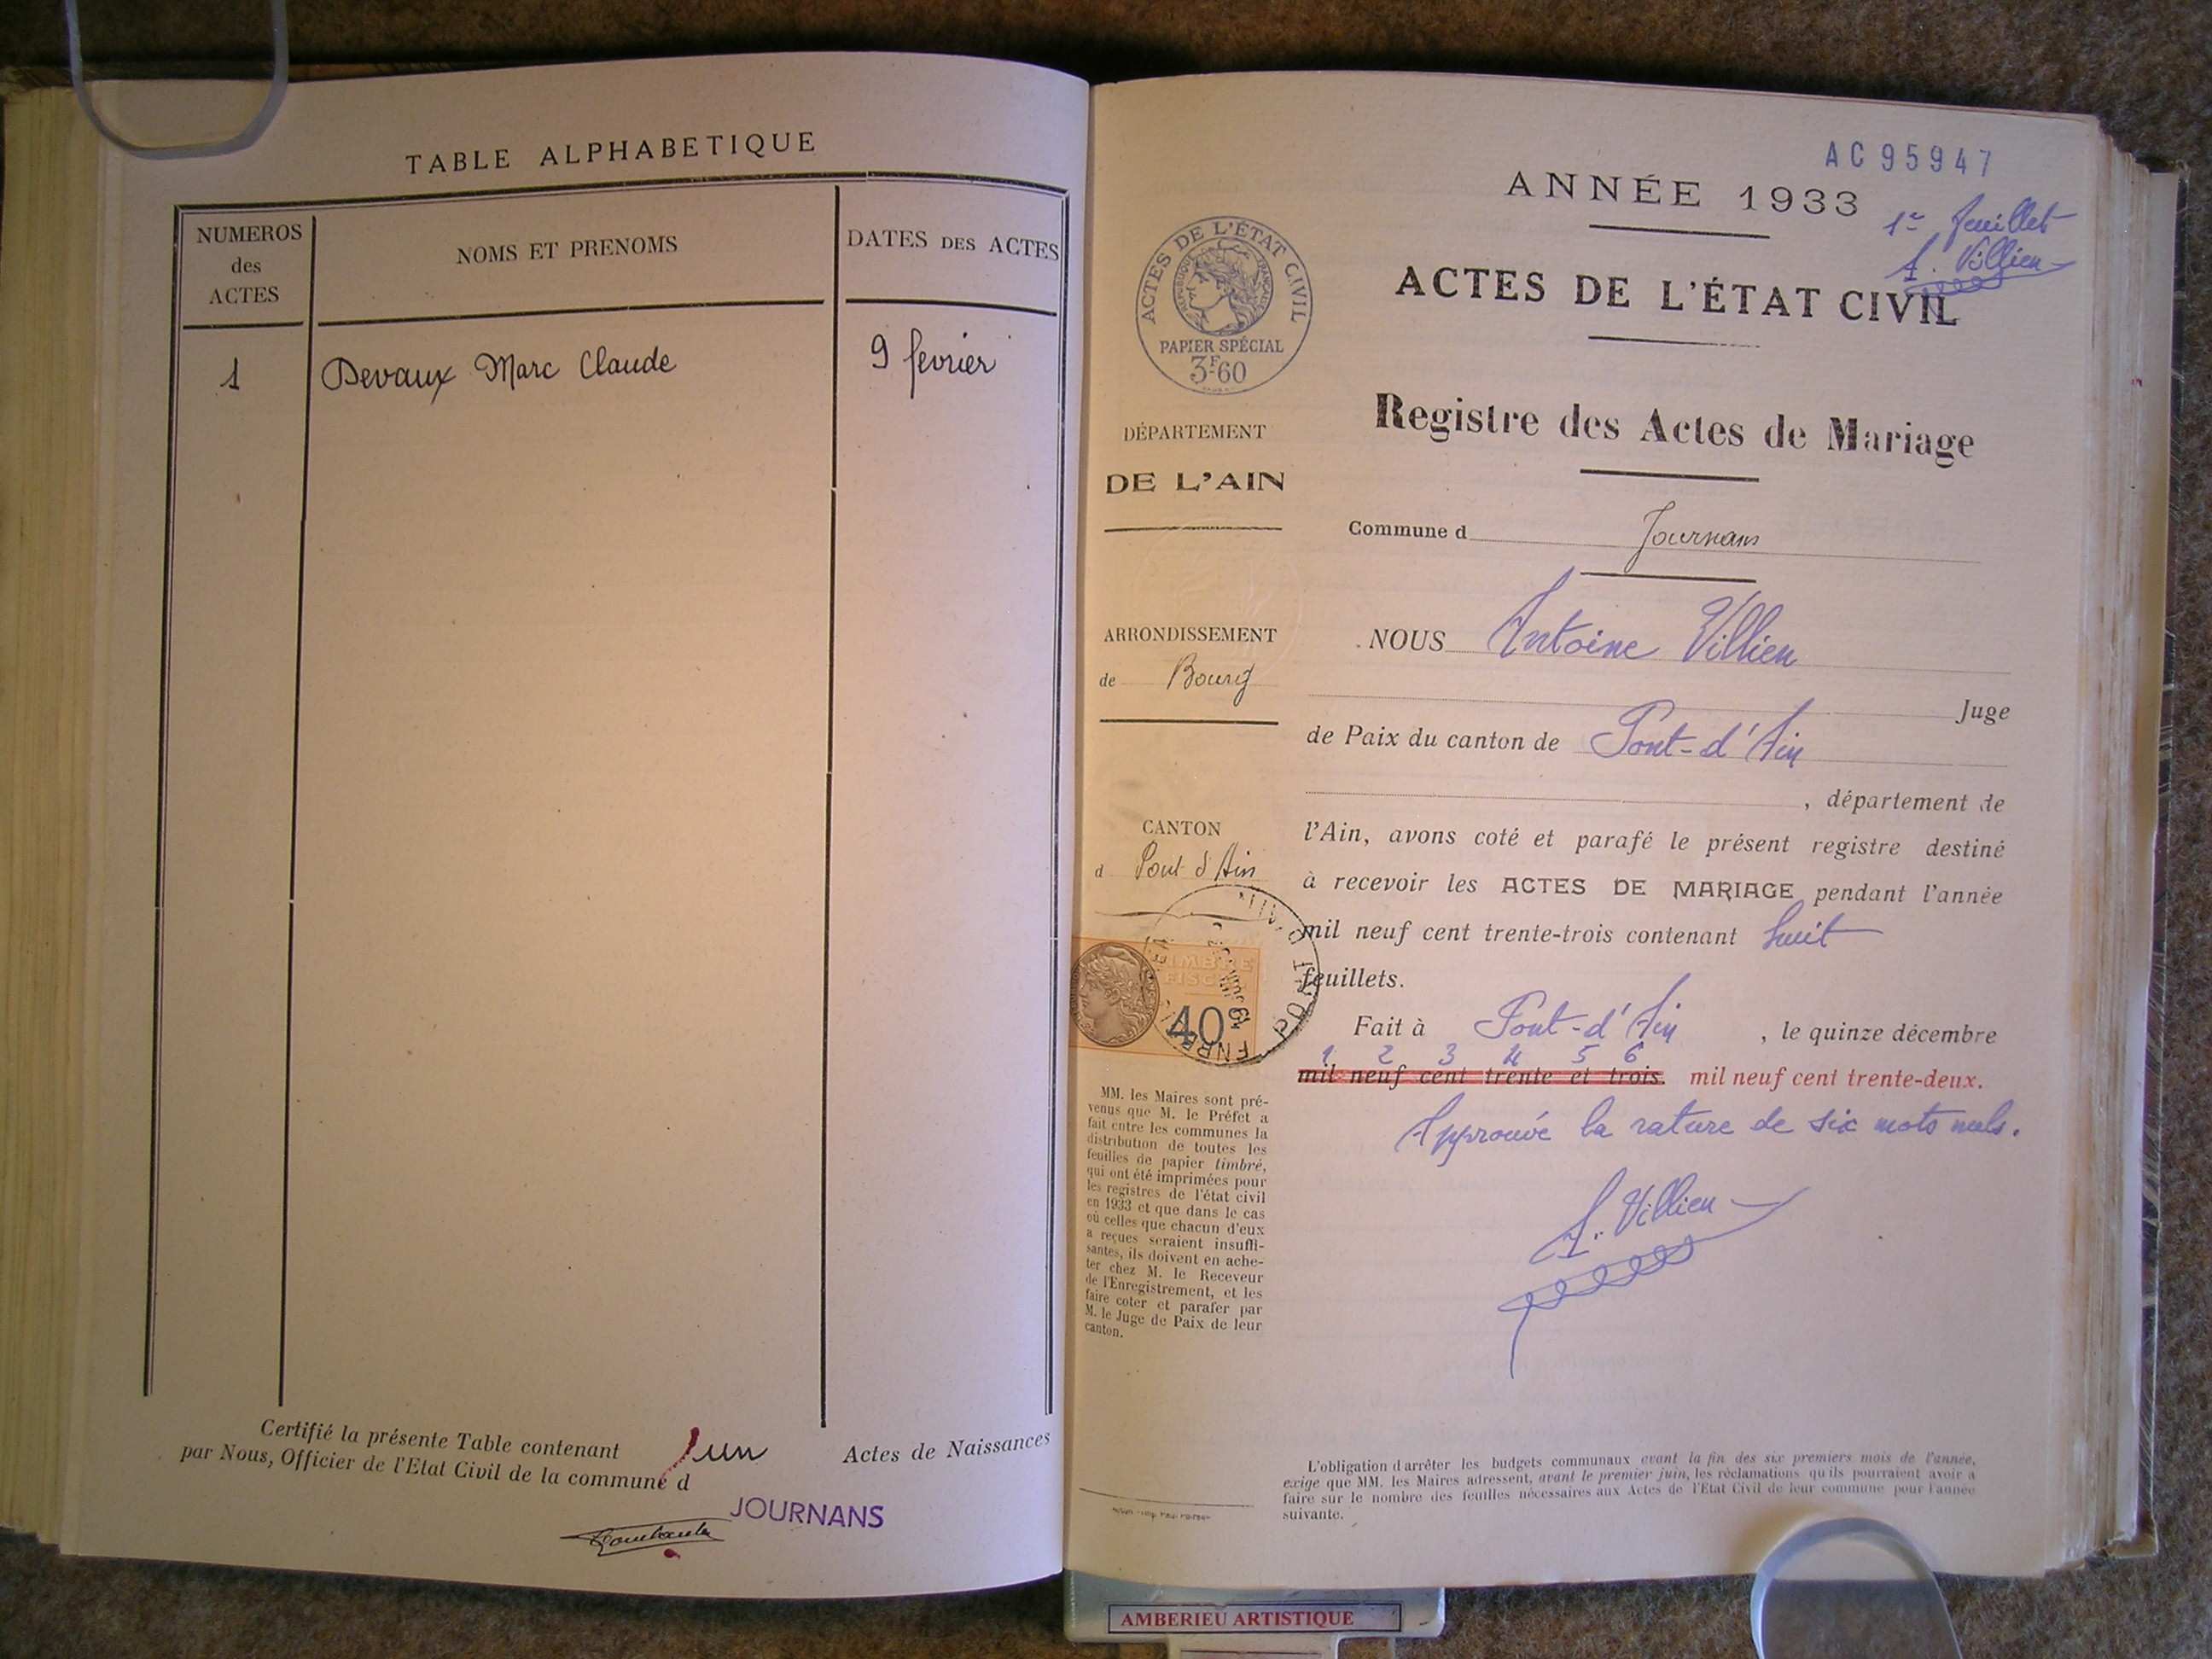 TABLE ALPHABETIQUE
NUMEROS
des
ACTES
NOMS ET PRENOMS
DATES DES ACTES
1
Devaux Marc Claude
9 fevrier
Certifié la présente Table contenant un Actes de Naissances
par Nous, Officier de l'Etat Civil de la commune d
JOURNANS
AC95947
ANNÉE 1933
1er feuillet
A. Villien
ACTES DE L'ÉTAT CIVIL
ACTES DE L'ÉTAT CIVIL
RÉPUBLIQUE FRANÇAISE
PAPIER SPÉCIAL
3F60
Registre des Actes de Mariage
DÉPARTEMENT
DE L'AIN
Commune d Journans
ARRONDISSEMENT
de Bourg
CANTON
d Pont d'Ain
TIMBRE
FISCAL
40
MM. les Maires sont pré-
venus que M. le Préfet a
fait entre les communes la
distribution de toutes les
feuilles de papier timbré,
qui ont été imprimées pour
les registres de l'état civil
en 1933 et que dans le cas
où celles que chacun d'eux
a reçues seraient insuffi-
santes, ils doivent en ache-
ter chez M. le Receveur
de l'Enregistrement, et les
faire coter et parafer par
M. le Juge de Paix de leur
canton.
NOUS Antoine Villien
Juge
de Paix du canton de Pont-d'Ain
, département de
l'Ain, avons coté et parafé le présent registre destiné
à recevoir les ACTES DE MARIAGE pendant l'année
mil neuf cent trente-trois contenant huit
feuillets.
Fait à Pont-d'Ain , le quinze décembre
1 2 3 4 5 6
mil neuf cent trente et trois. mil neuf cent trente-deux.
Approuvé la rature de six mots nuls.
A. Villien
L'obligation d'arrêter les budgets communaux avant la fin des six premiers mois de l'année,
exige que MM. les Maires adressent, avant le premier juin, les réclamations qu'ils pourraient avoir à
faire sur le nombre des feuilles nécessaires aux Actes de l'Etat Civil de leur commune pour l'année
suivante.
AMBERIEU ARTISTIQUE